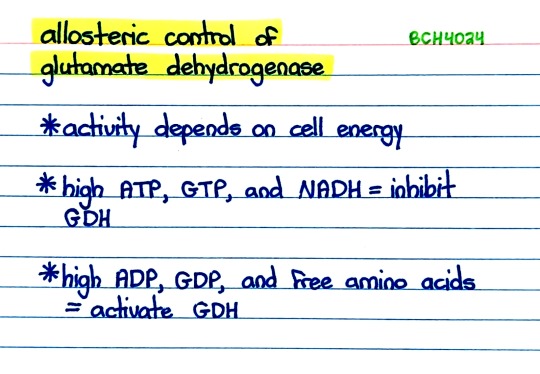 allosteric control of
BCH4024
glutamate dehydrogenase
*activity depends on cell energy
*high ATP, GTP, and NADH = inhibit
GDH
*high ADP, GDP, and free amino acids
= activate GDH